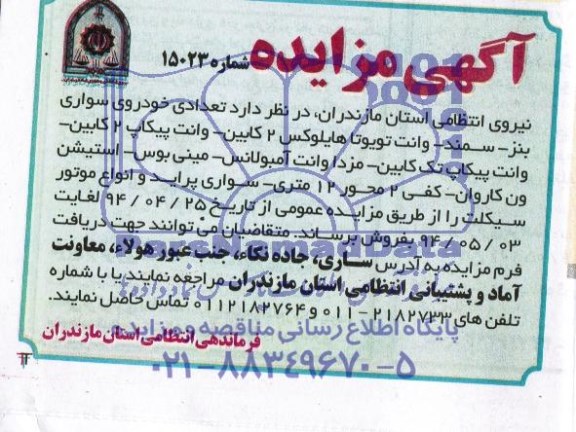 آگهی مزایده شماره ۱۵۰۲۳
نیروی انتظامی استان مازندران، در نظر دارد تعدادی خودروی سواری
بنز- سمند- وانت تویوتا هایلوکس ۲ کابین- وانت پیکاپ ۲ کابین-
وانت پیکاپ تک کابین- مزدا وانت آمبولانس- مینی بوس- استیشن
ون کاروان- کفی ۲ محور ۱۲ متری- سواری پراید و انواع موتور
سیکلت را از طریق مزایده عمومی از تاریخ ۲۵ / ۰۴ / ۹۴ لغایت
۰۳ / ۰۵ / ۹۴ بفروش برساند. متقاضیان می توانند جهت دریافت
فرم مزایده به آدرس ساری، جاده نکاء، جنب عبور هولاء، معاونت
آماد و پشتیبانی انتظامی استان مازندران مراجعه نمایند یا با شماره
تلفن های ۲۱۸۲۷۳۳-۰۱۱ و ۰۱۱۲۱۸۲۷۶۴ تماس حاصل نمایند.
فرماندهی انتظامی استان مازندران
ParsNamadData
پایگاه اطلاع رسانی مناقصه و مزایده
۰۲۱-۸۸۳۴۹۶۷۰-۵